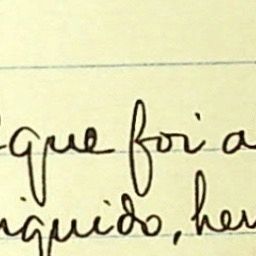 que foi a
iquido, her